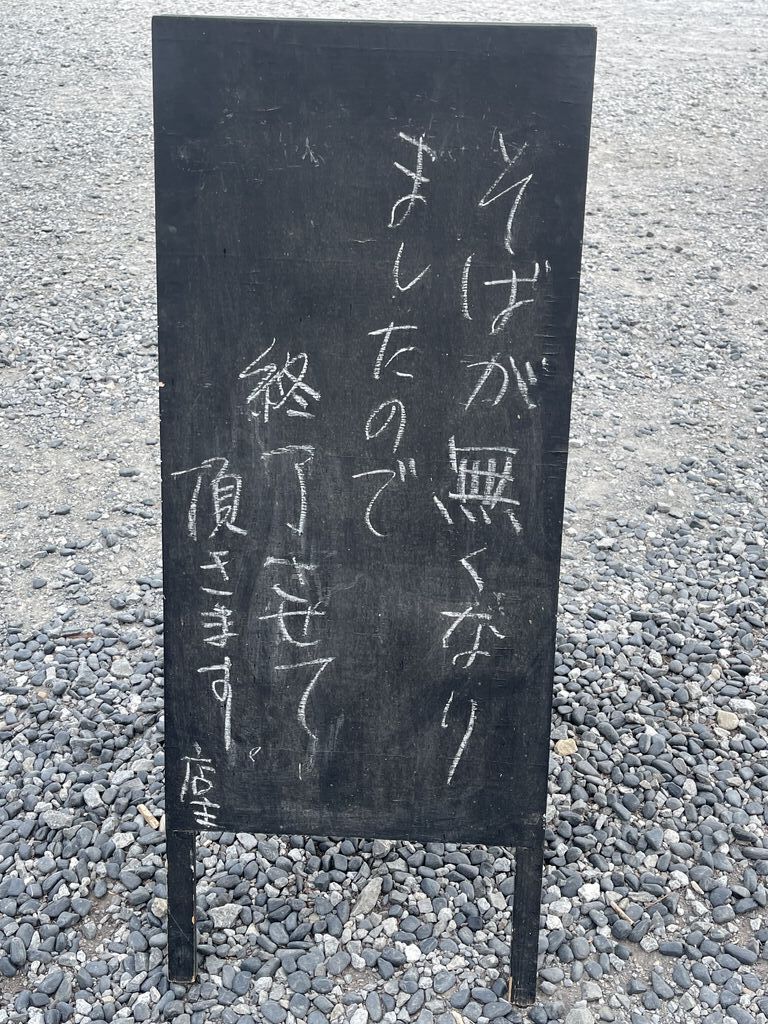 そばが無くなり
ましたので
終了させて
頂きます。
店主